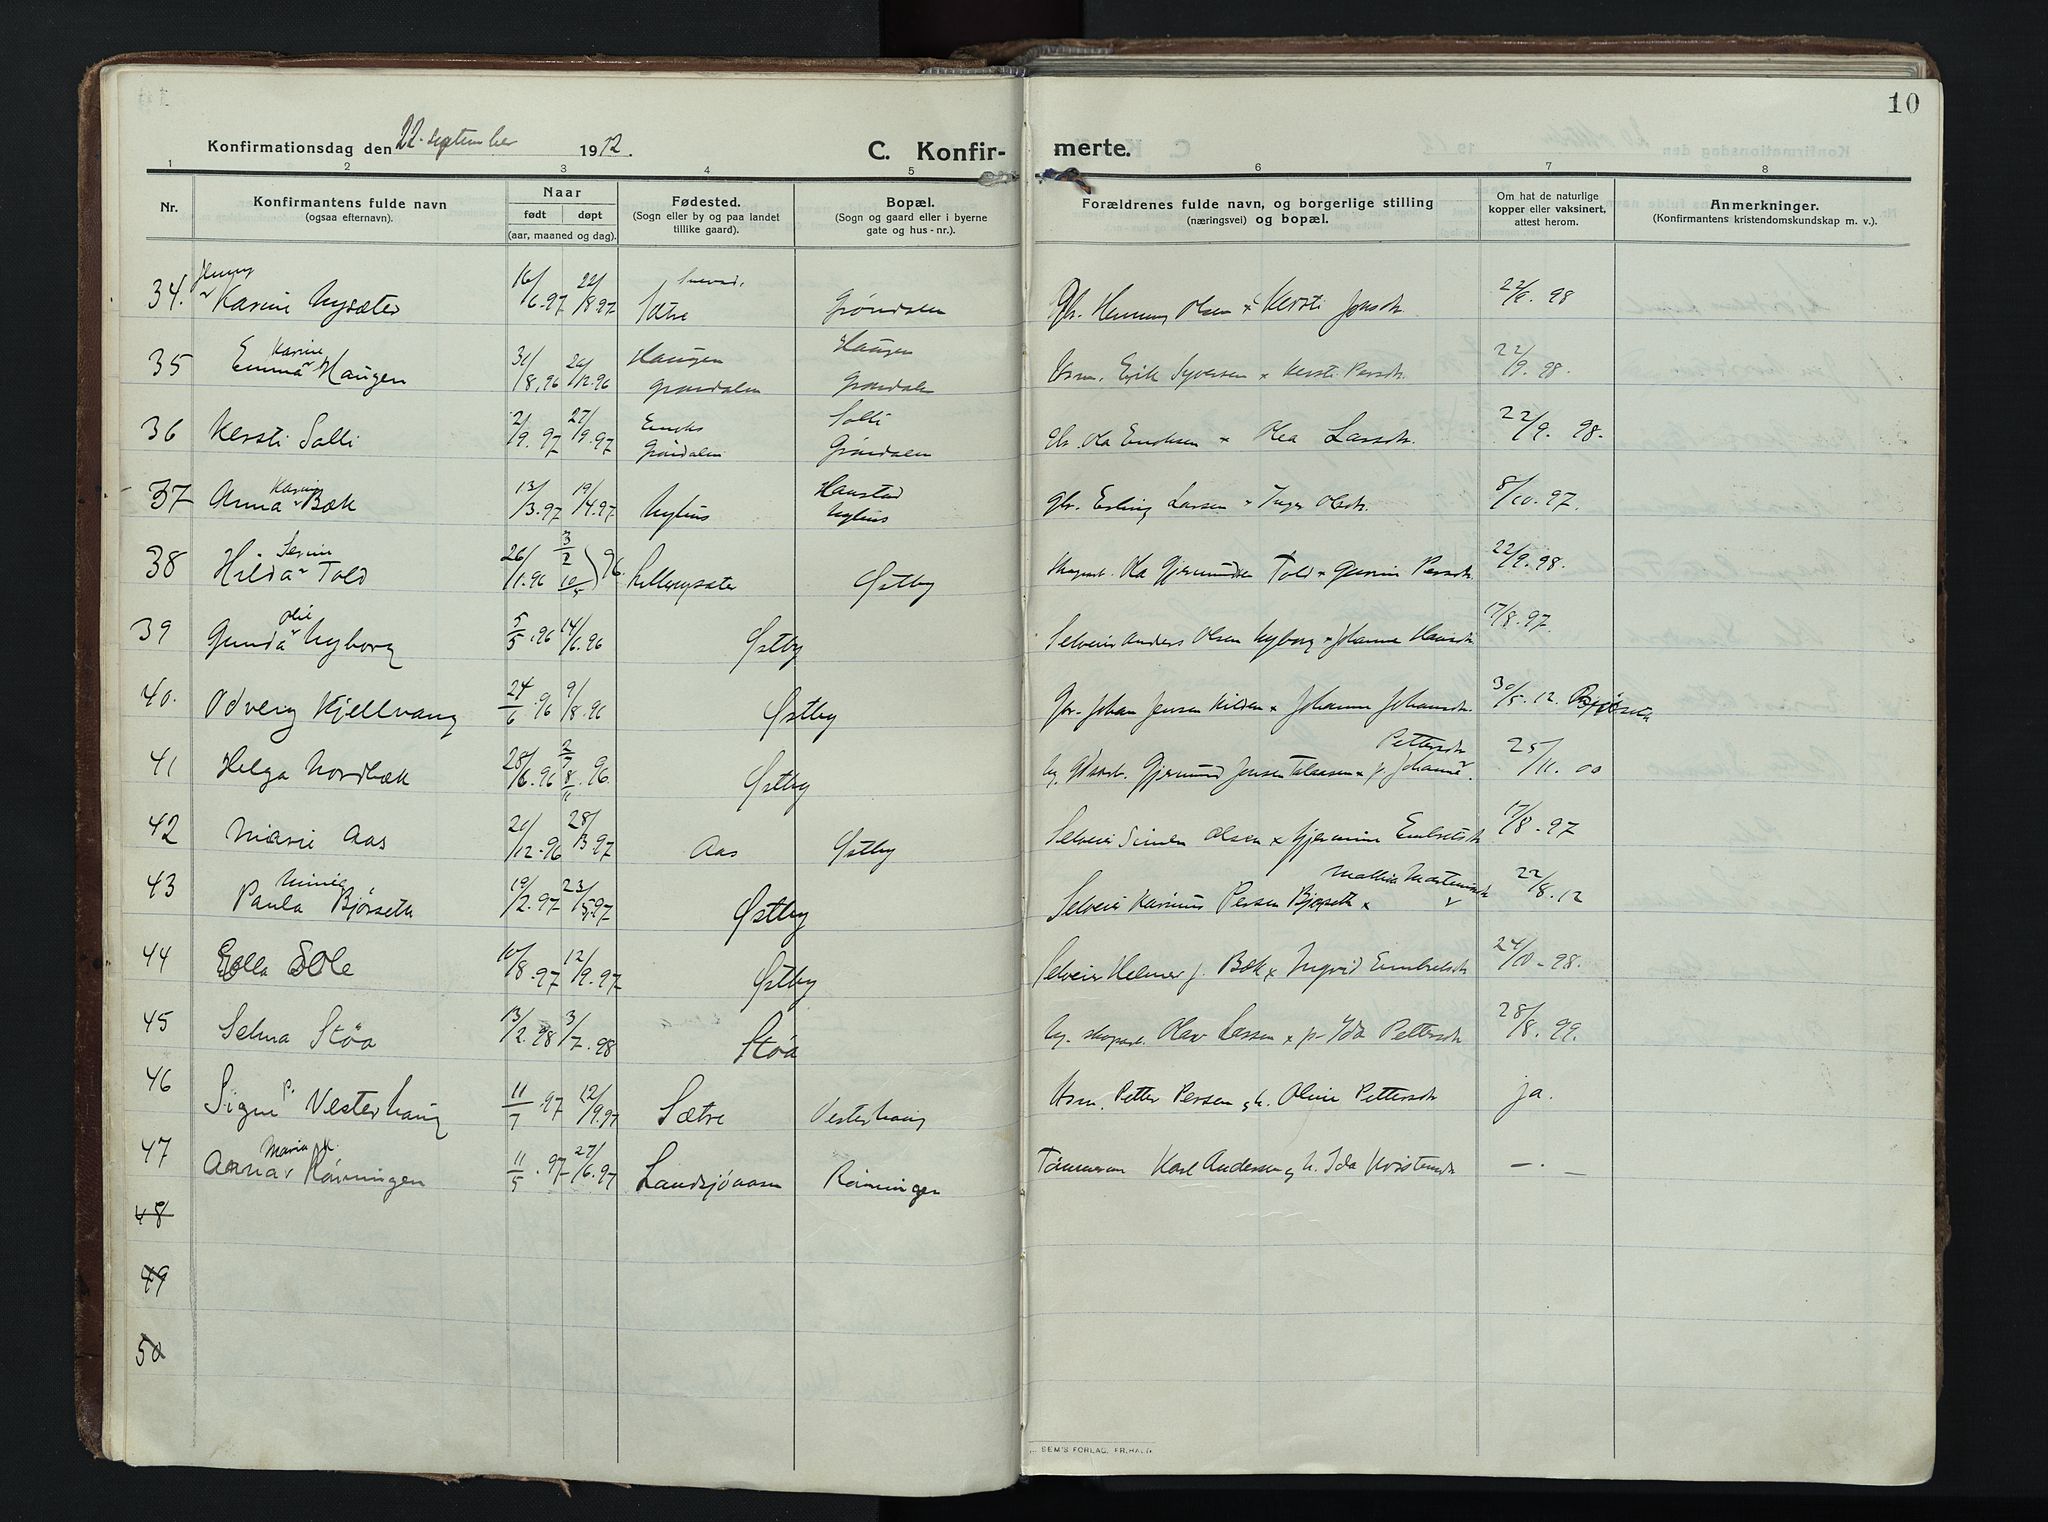 10
Konfirmationsdag den 22. september 1912.
C. Konfir- merte.
1 2 3 4 5 6 7 8
Nr.
Konfirmantens fulde navn
(ogsaa efternavn).
Naar
født døpt
(aar, maaned og dag).
Fødested.
(Sogn eller by og paa landet
tillike gaard).
Bopæl.
(Sogn og gaard eller i byerne
gate og hus-nr.).
Forældrenes fulde navn, og borgerlige stilling
(næringsvei) og bopæl.
Om hat de naturlige
kopper eller vaksinert,
attest herom.
Anmerkninger.
(Konfirmantens kristendomskundskap m. v.).
Jenny
34. Karine Nysæter 16/6.97 22/8.97 Sætre Grøndalen Gbr. Henning Olsen x Kersti Jonsdr. 98
Karine
35 Emma Haugen 31/8.96 26/12.96 Haugen Grøndalen Haugen Grøndalen Erik Syversen x Kersti Persdr. 22/9.98.
36 Kersti Solli 2/9.97 27/9.97 Grøndalen Solli Grøndalen Gbr. Ola Eriksen x Olea Larsdr. 22/9.98.
Karine
37 Anna Bæk 13/3.97 19/4.97 Nyhus Nyhus Gbr. Erling Larsen x Inger Olsdr. 8/10.97.
38 Hilda Told 26/1.96 3/2 10/5 96. Lillenysæter Østby Ola Gjermundsen Told x Persdr. 22/9.98.
Olie
39 Gunda Nyborg 5/5.96 14/6.96 Østby Selveier Anders Olsen Nyborg x Johanne Hansdr. 17/8.97.
40. Odveig Kjellvang 24/6.96 9/8.96 Østby Gbr. Johan Jensen Kilden x Johanne Johansdr. 30/5.12. Bjørseth
41 Helga Nordbæk 28/6.96 96. Østby Gjermund Jensen x p. Johanne Pettersdr. 25/11.00
42 Marie Aas 20/12.96 28/3.97 Aas Østby Selveier Simen Olsen x Gjermine Embretsdr. 17/8.97
43 Paula Bjørseth 19/2.97 23/5.97 Østby Selveier Karinus Persen Bjørseth x Mathea Mortensdr. 22/8.12
44 Ella 10/8.97 12/9.97 Østby Selveier Helmer J. Bæk x Ingrid Embretsdr. 24/10.98.
45 Selma Støa 13/2.98 3/7.98 Støa Ug. skogsarb. Olav Larsen x p. Ida Pettersdr. 28/8.99.
46 Signe P. Vesterhaug 11/7.97 12/9.97 Sætre Vesterhaug Petter Persen og h. Oline Pettersdr. ja.
Maria K.
47 Anna Rønningen 11/5.97 27/6.97 Landsjøaasen Rønningen Tømmerm. Karl Andersen og h. Ida Kristensdr. —. —
48
49
50
SEM'S FORLAG, FR.HALD